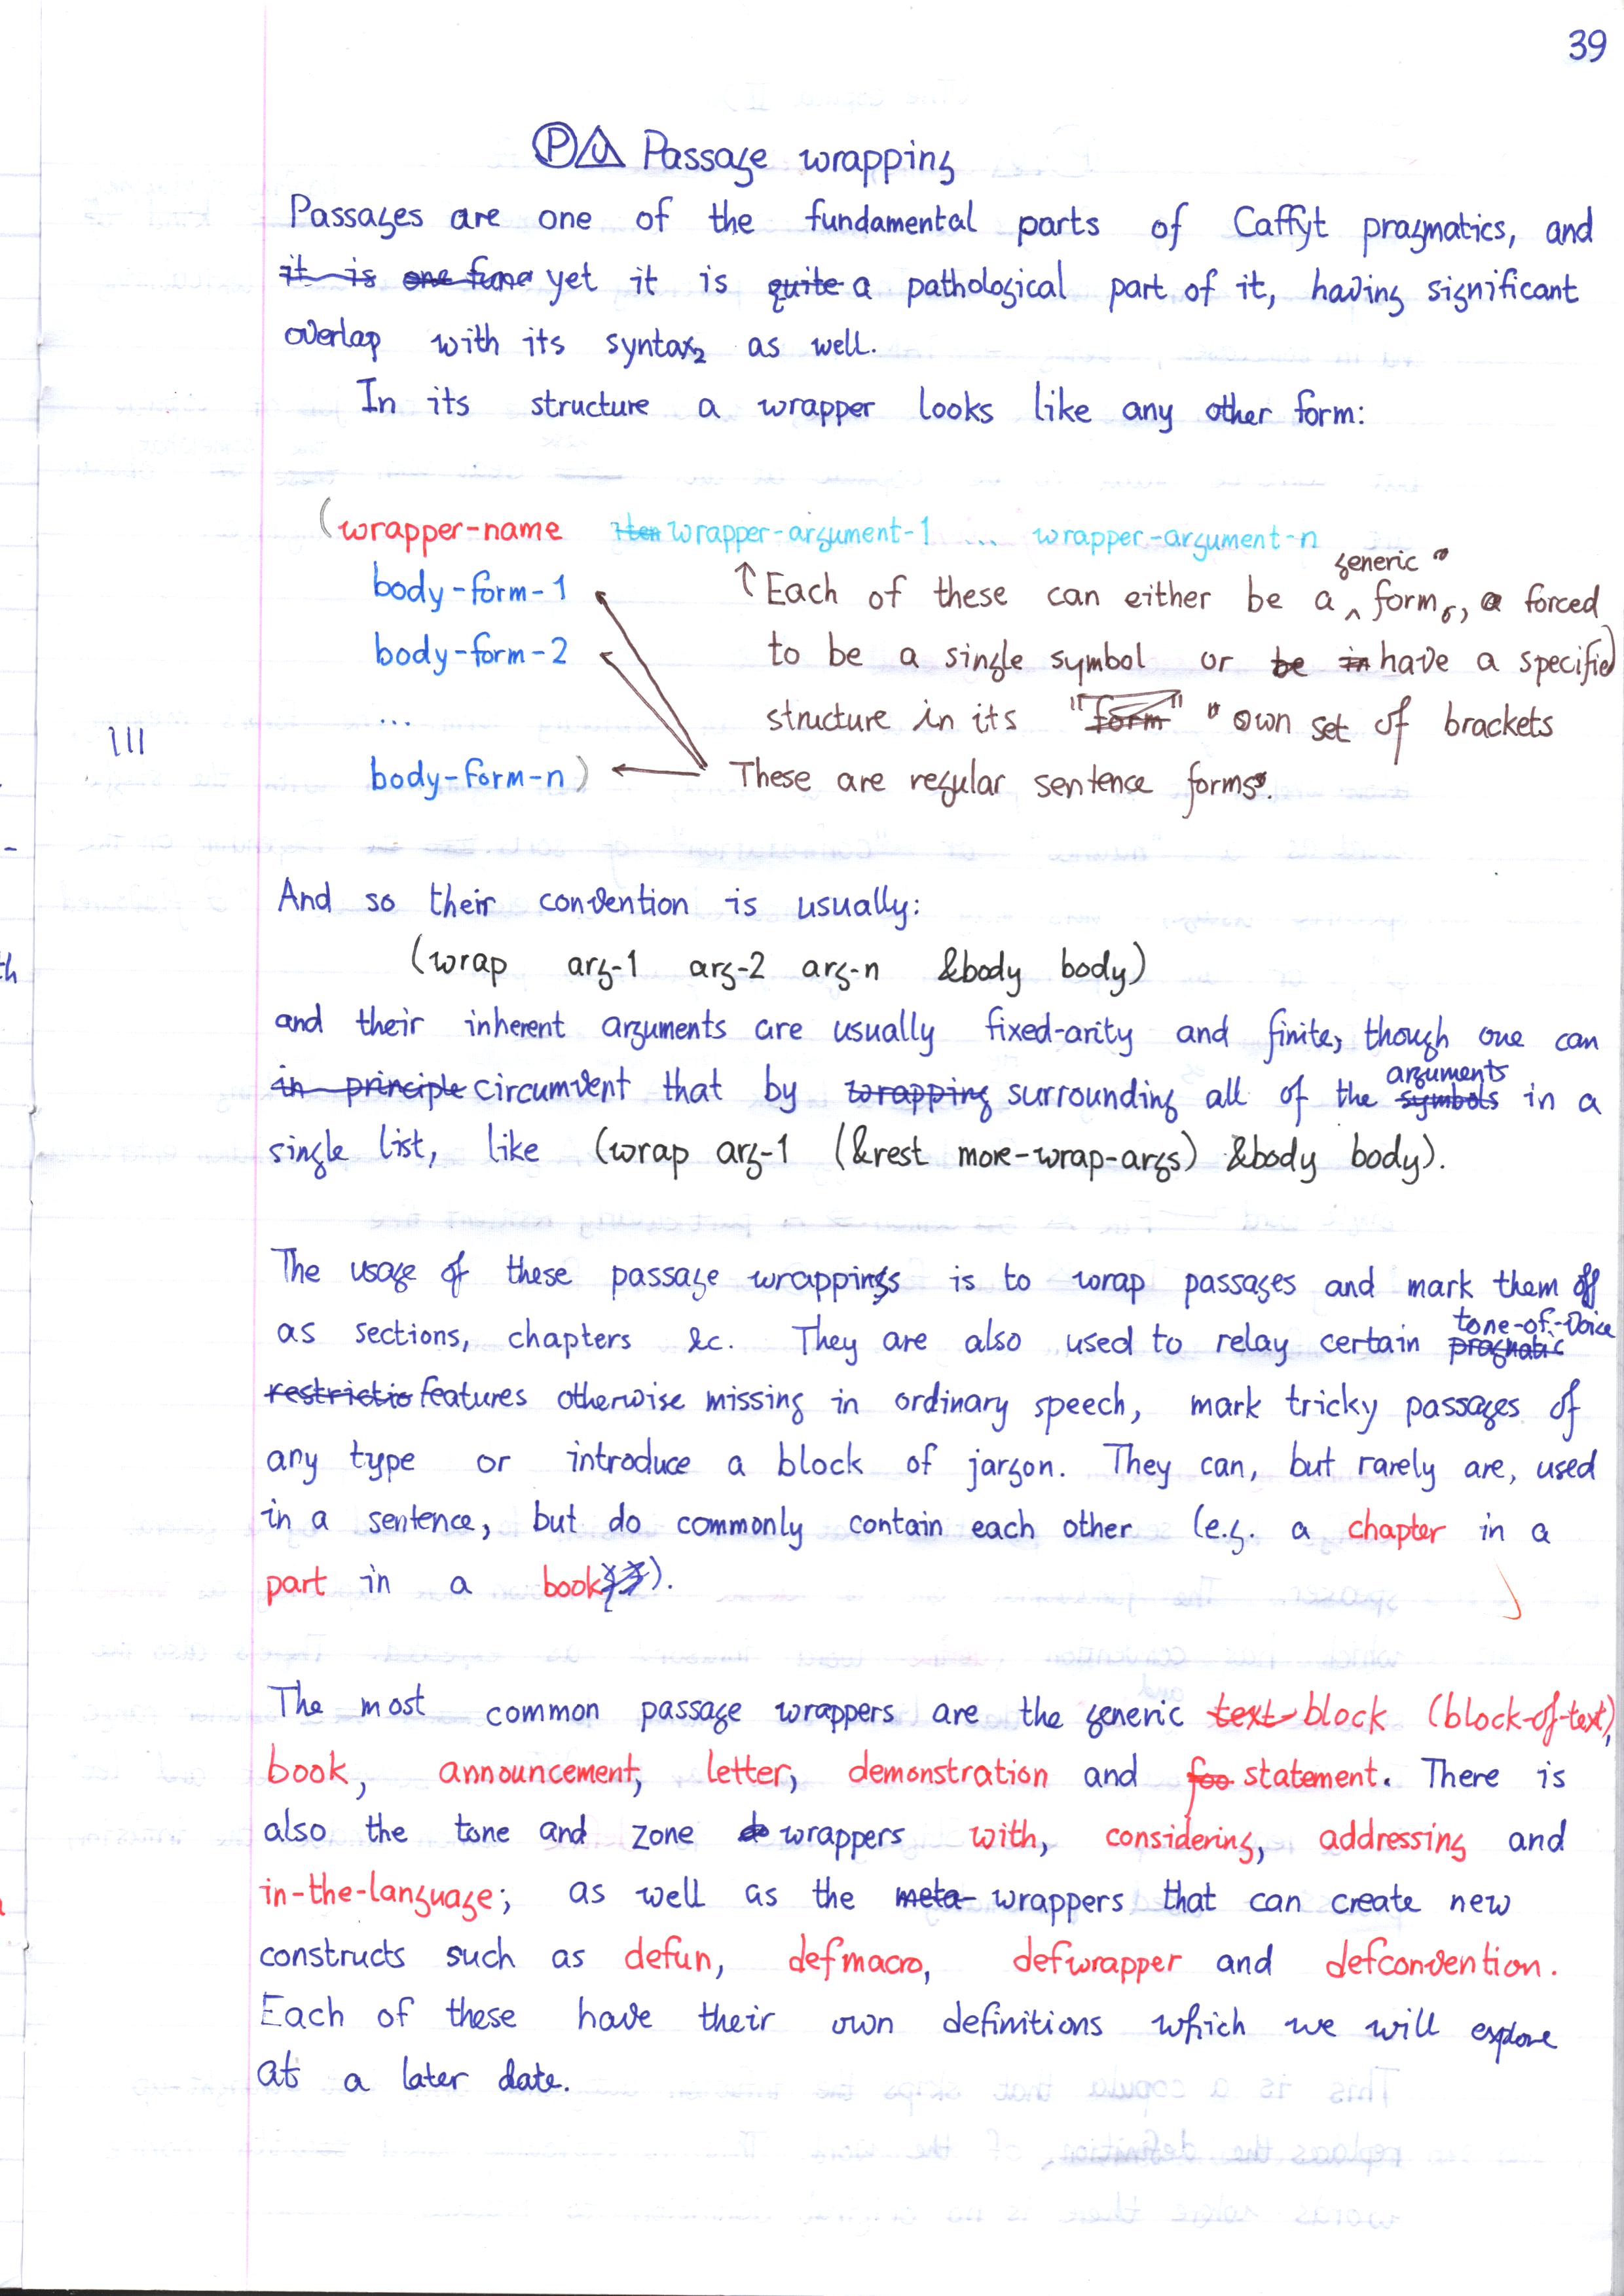 39
Ⓟ Passage wrapping
Passages are one of the fundamental parts of Caffyt pragmatics, and
it is one funa yet it is quite a pathological part of it, having significant
overlap with its syntax₂ as well.
In its structure a wrapper looks like any other form:
(wrapper-name wrapper-argument-1 ... wrapper-argument-n
generic
body-form-1 ↑ Each of these can either be a ^ form, a forced
body-form-2 to be a single symbol or be in have a specified
... structure in its "form" own set of brackets
111
body-form-n) These are regular sentence forms.
And so their convention is usually:
(wrap arg-1 arg-2 arg-n &body body)
and their inherent arguments are usually fixed-arity and finite, though one can
arguments
in principle circumvent that by wrapping surrounding all of the symbols in a
single list, like (wrap arg-1 (&rest more-wrap-args) &body body).
The usage of these passage wrappings is to wrap passages and mark them off
tone-of-voice
as sections, chapters &c. They are also used to relay certain pragmatic
restrictio features otherwise missing in ordinary speech, mark tricky passages of
any type or introduce a block of jargon. They can, but rarely are, used
in a sentence, but do commonly contain each other (e.g. a chapter in a
part in a book).
The most common passage wrappers are the generic text-block (block-of-text),
book, announcement, letter, demonstration and foo statement. There is
also the tone and zone wrappers with, considering, addressing and
in-the-language; as well as the meta- wrappers that can create new
constructs such as defun, defmacro, defwrapper and defconvention.
Each of these have their own definitions which we will explore
at a later date.